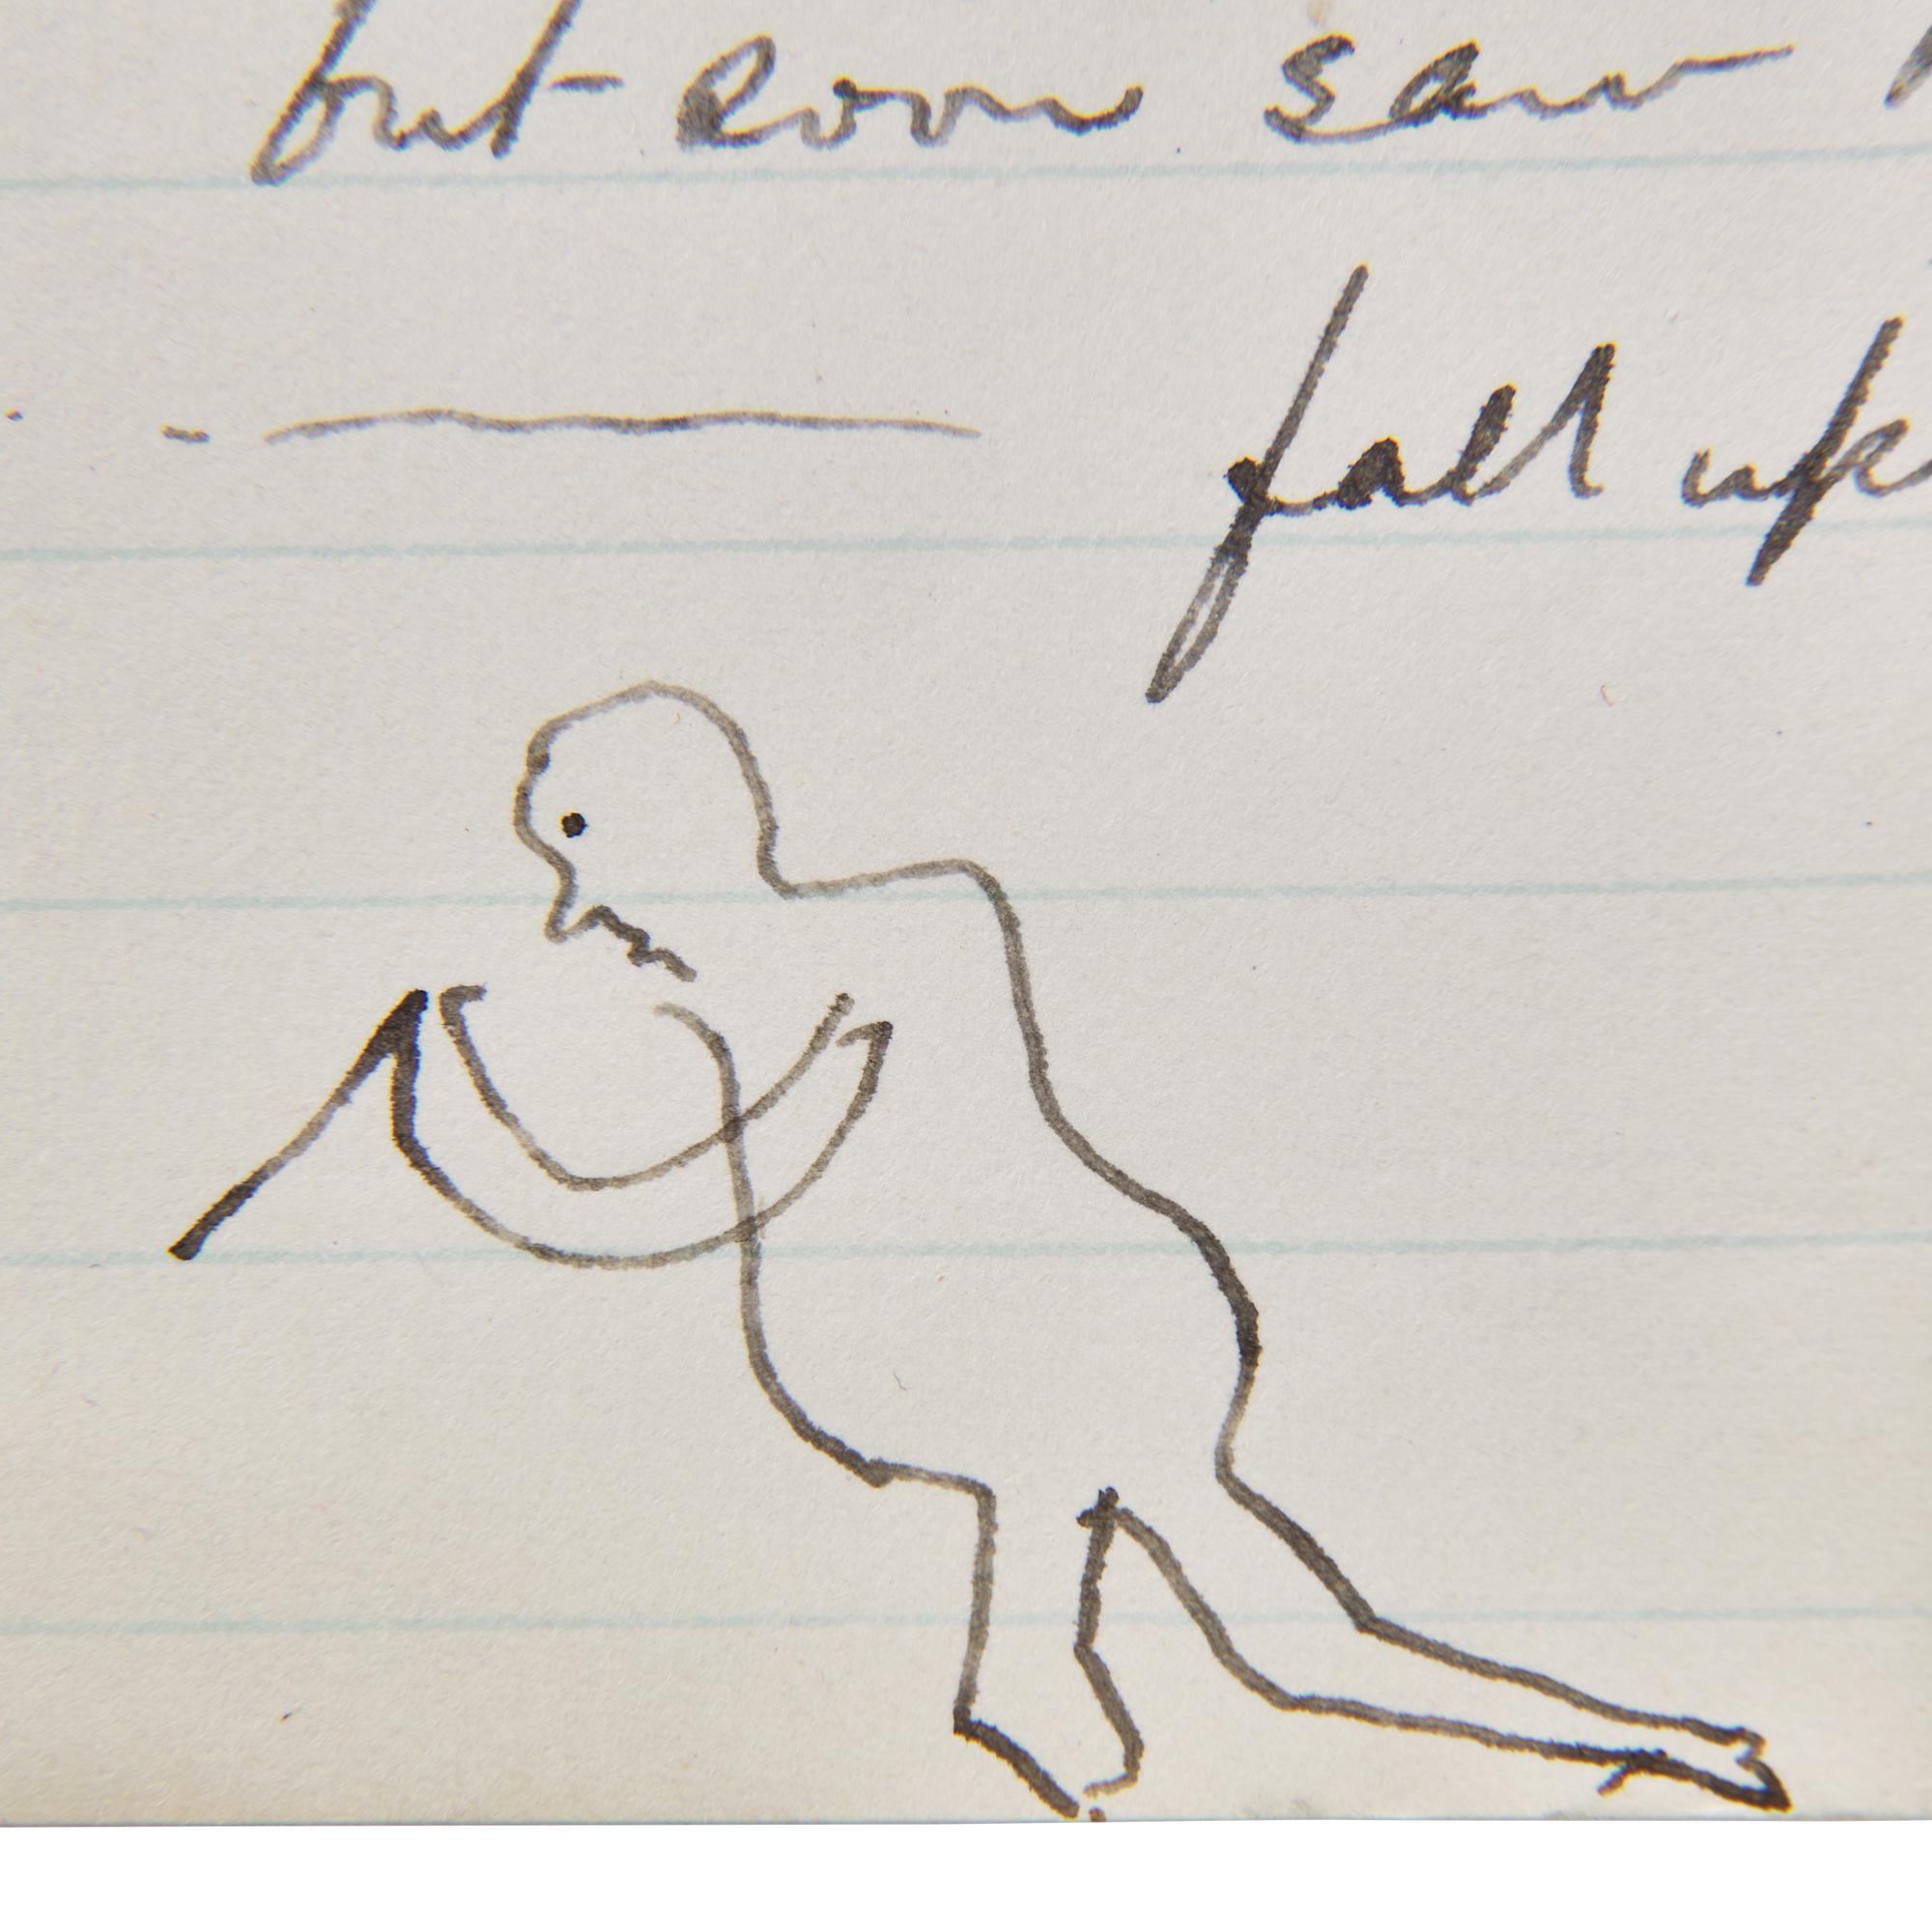 but soon saw
fall up